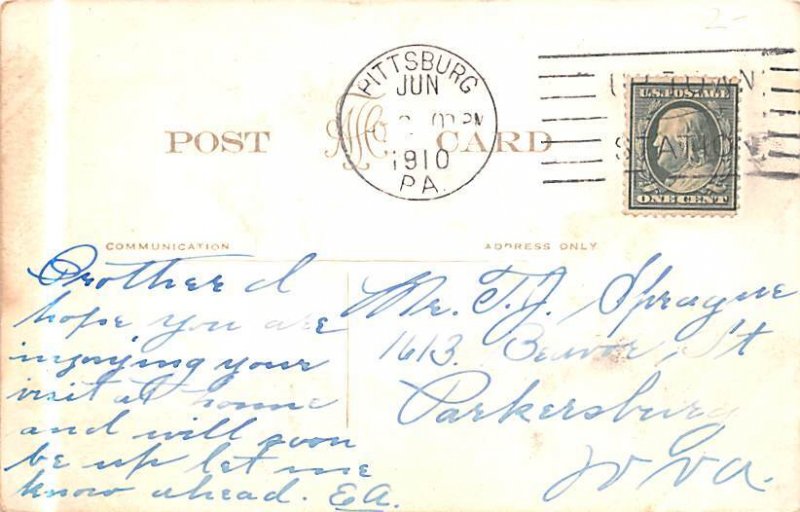 PITTSBURG
JUN
1910
PA.
STATION
U.S. POSTAGE
ONE CENT
POST CARD
COMMUNICATION
ADDRESS ONLY
Brother I
hope you are
injoying your
visit at home
and will soon
be up let me
know ahead. EA.
Mr. T. J. Sprague
1613. Beaver, St
Parkersburg
W Va.